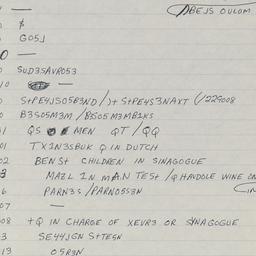 ABEJS OULOM
—
$
GO5J
0 —
SUD3SAVRO53
10 —
STPE4JSO5B3ND / )+ STPE4S3NAXT (/229008
0 B3SO5M3M / BJSO5M3MB2KS
QS MEN QT / QQ
01 TX1N3SBUK Q IN DUTCH
02 BENST CHILDREN IN SINAGOGUE
3 MAZL IN MAN TEST / Q HAVDOLE WINE ON
6 PARN3S / PARNO5S3N (IN
07 —
08 +Q IN CHARGE OF XEVR3 OR SYNAGOGUE
3 SE44JGN STTESN
13 O5R3N